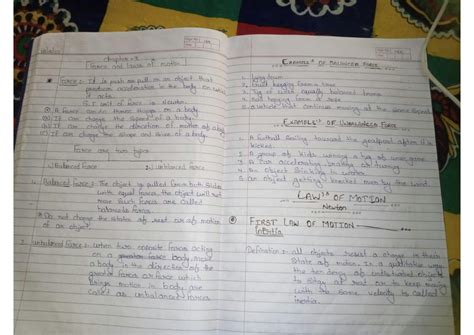 Chapter - 3
Force and laws of motion
Force :- It is push or pull on an object that
produces acceleration in the body on which
it acts.
S.I unit of force is Newton
A force can do
(i) It can change the speed of a body.
(ii) It can change the direction of motion of a body
(iii) It can change the shape and size of a body.
Force are two types
1) Balanced force 2) unbalanced force
1. Balanced force :- The object is pulled from both sides
with equal force the object will not
move such force are called
balanced force
* Do not change the state of rest or of motion
of an object.
2. unbalanced force :- when two opposite force acting
on a body, move
a body in the direction of the
greater force or force which
brings motion in body are
called an unbalanced force
EXAMPLE'S OF BALANCED FORCE
1. Lying down
2. hanging from a
3. Tug of war with equally balanced teams
4. fruit hanging from a
5. a vehicle that continues moving at the same speed
EXAMPLE'S OF UNBALANCED FORCE
1. A football sailing toward the goalpost after it is
kicked.
2. A group of kids winning a tug of war game
3. A car accelerating, breaking or turning
4. An object sinking in water
5. An object getting knocked over by the wind
LAW'S OF MOTION
Newton
FIRST LAW OF MOTION
Inertia
Definition :- all objects resist a change in their
state of motion. In a qualitative way,
the tendency of undisturbed objects
to stay at rest or to keep moving
with the same velocity is called
inertia.